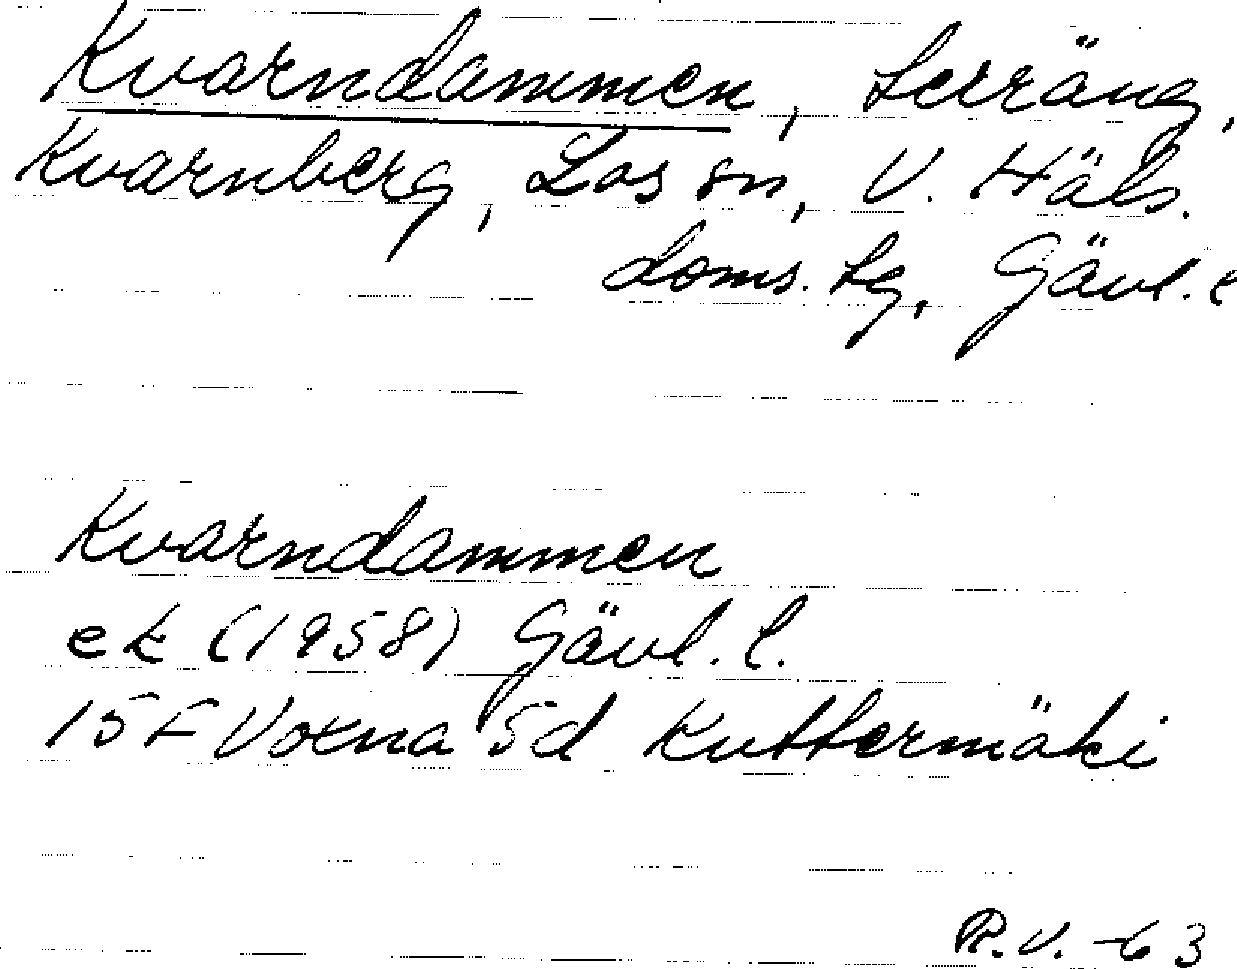 Kvarndammen, terräng,
Kvarnberg, Los sn, V. Häls.
doms. tg, Gävl. l
Kvarndammen
ek (1958) Gävl. l.
15F Voxna 5d Kuttermäki
R.V. -63